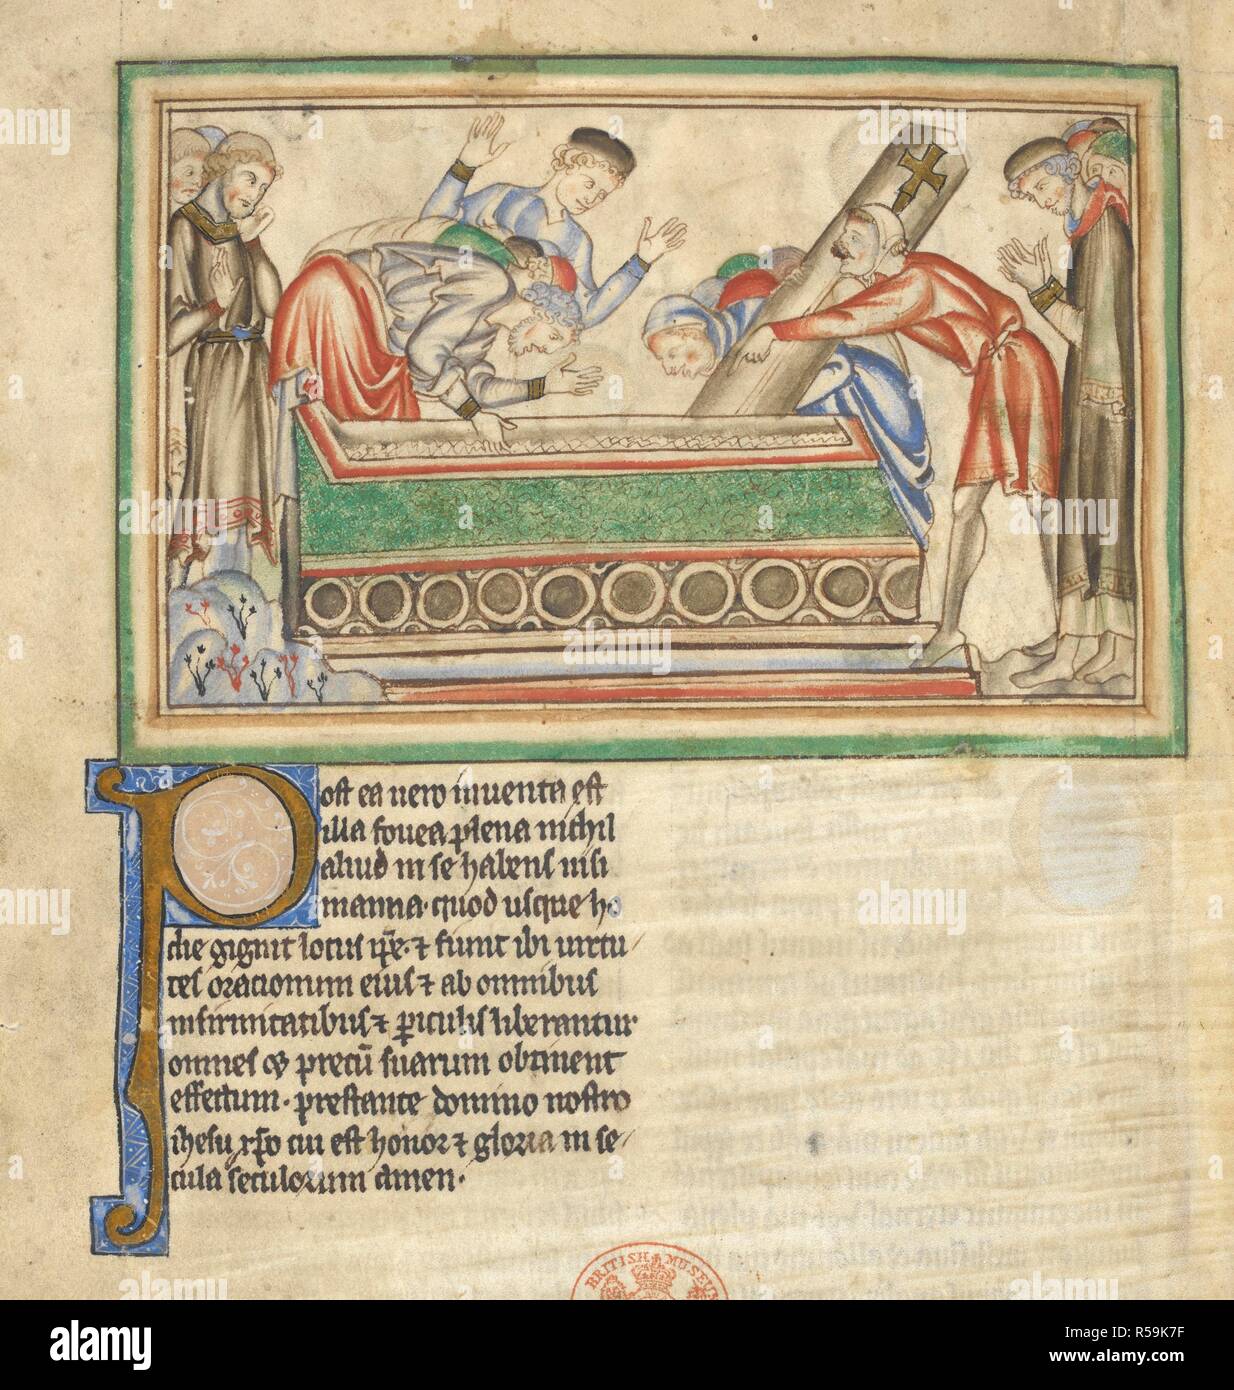 Post ea uero inuenta est
illa fouea plena nichil
aliud in se habens nisi
manna. quod usque ho
die gignit locus ipse. ⁊ fiunt ibi uirtu/
tes orationum eius ⁊ ab omnibus
infirmitatibus ⁊ periculis liberantur
omnes ⁊ precum suarum obtinent
effectum. prestante domino nostro
ihesu xpo cui est honor ⁊ gloria in se/
cula seculorum amen.
BRITISH MUSEUM
alamy
Image ID: R59K7F
www.alamy.com